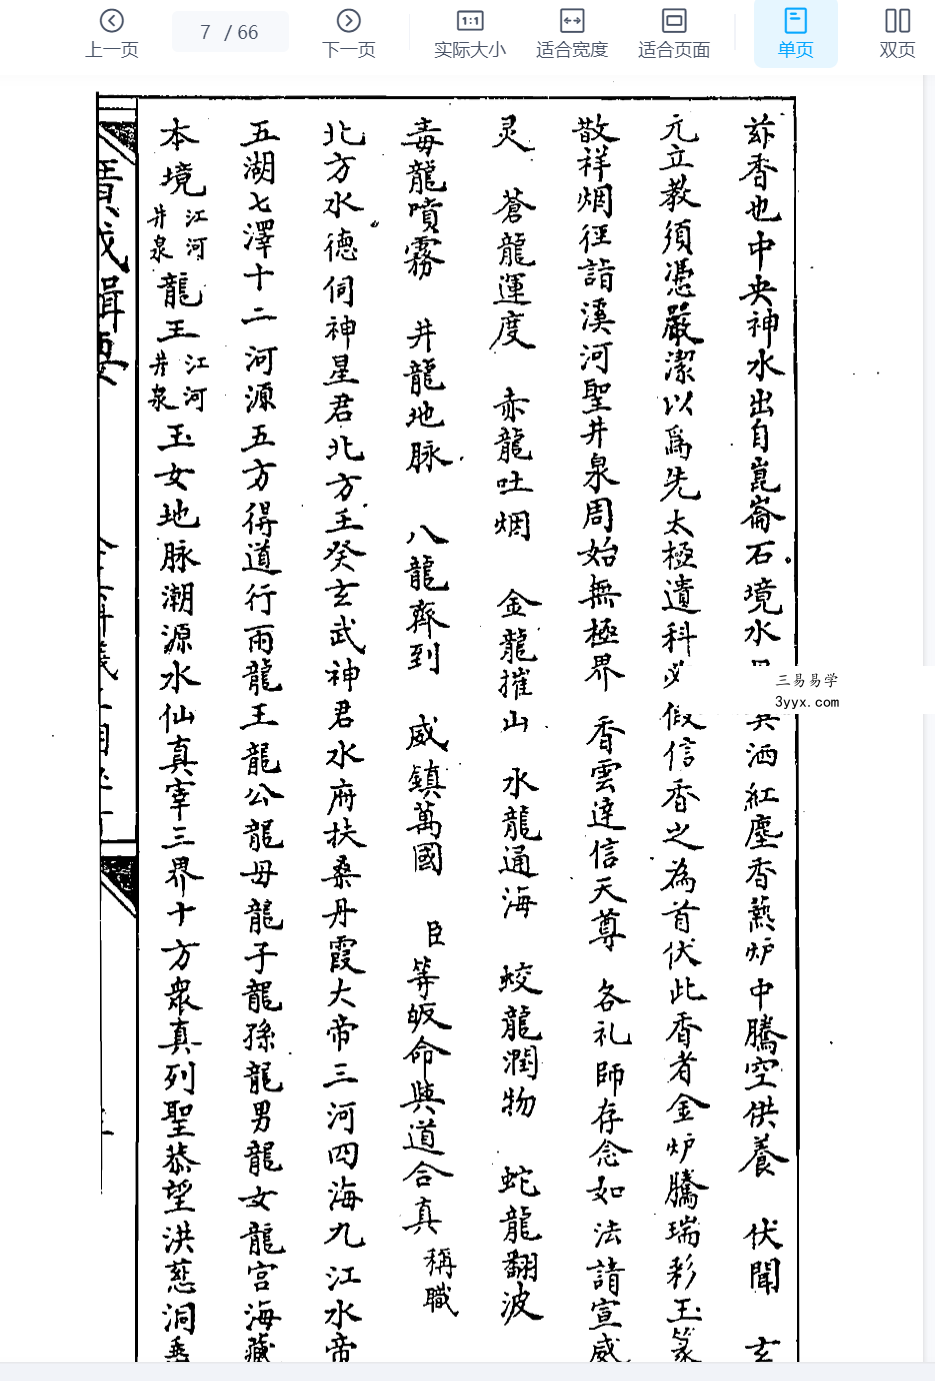 上一页
7 / 66
下一页
实际大小
适合宽度
适合页面
单页
双页
兹香也中央神水出自崑崙石境水洒紅塵香爇炉中騰空供養 伏聞 玄
元立教須憑嚴潔以爲先太極遺科必假信香之為首伏此香者金炉騰瑞彩玉篆
散祥烟徑詣溪河聖井泉周始無極界 香雲達信天尊 各礼師存念如法請宣威
灵 蒼龍運度 赤龍吐烟 金龍摧山 水龍通海 蛟龍潤物 蛇龍翻波
毒龍噴霧 井龍地脉 八龍齊到 威鎮萬國 臣等皈命與道合真 稱職
北方水德伺神星君北方壬癸玄武神君水府扶桑丹霞大帝三河四海九江水帝
五湖七澤十二河源五方得道行雨龍王龍公龍母龍子龍孫龍男龍女龍宫海藏
本境江河井泉龍王江河井泉玉女地脉潮源水仙真宰三界十方衆真列聖恭望洪慈洞垂
廣成輯要
三易易学
3yyx.com